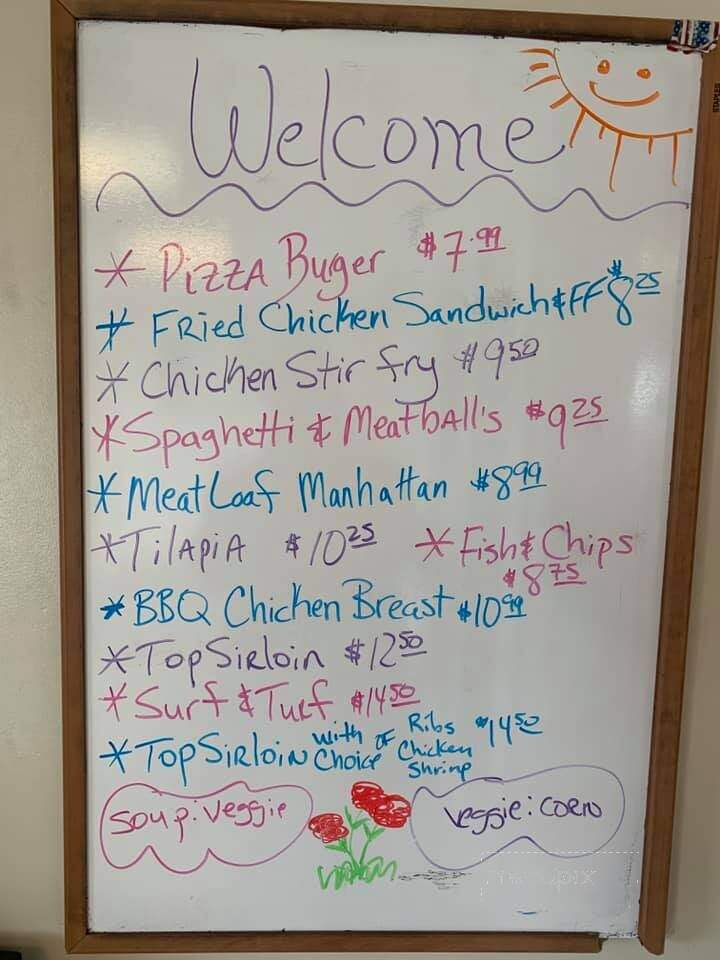 Welcome
* PIZZA Buger $7.99
* FRied Chicken Sandwich & FF $8 25
* Chicken Stir fry $9 50
* Spaghetti & Meatball's $9 25
* Meat Loaf Manhattan $8 99
* TilApiA $10 25 * Fish & Chips
$8 75
* BBQ Chicken Breast $10 99
* Top SiRloin $12 50
* Surf & Turf $14 50
* Top SiRloin with Choice of Ribs Chicken Shrimp $14 50
Soup: Veggie
Veggie: CoRN